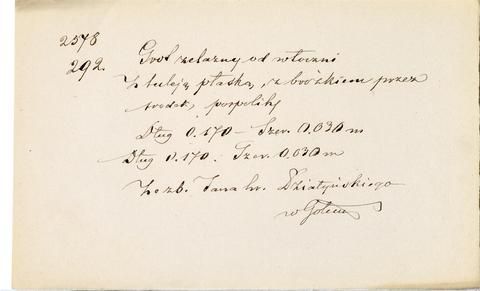 2578
292. Grot żelazny od włóczni
z tuleją płaską, z bróżkiem przez
środek, pospolity
Dług 0.170 – Szer. 0.030 m
Dług 0.170. Szer. 0.030 m
Ze zb. Jana hr. Działyńskiego
w